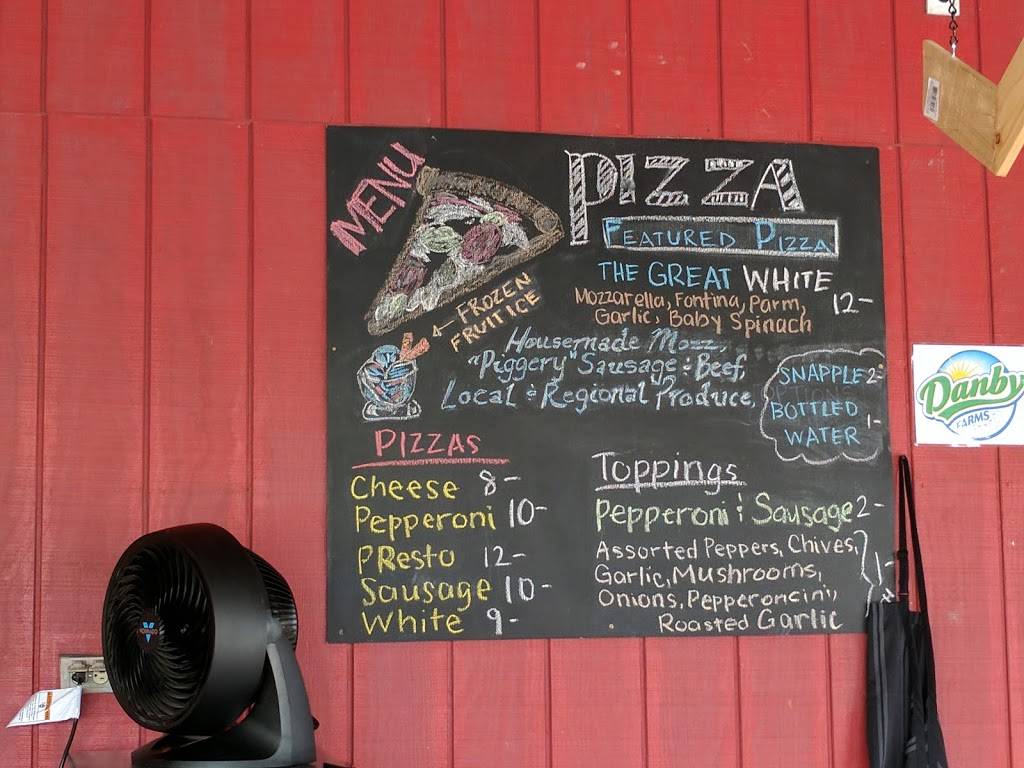 MENU
PIZZA
FEATURED PIZZA
THE GREAT WHITE
Mozzarella, Fontina, Parm,
Garlic, Baby Spinach
12-
FROZEN
FRUIT ICE
Housemade Mozz,
"Piggery" Sausage & Beef,
Local & Regional Produce,
SNAPPLE 2-
BOTTLED
WATER
1-
PIZZAS
Cheese 8-
Pepperoni 10-
PResto 12-
Sausage 10-
White 9-
Toppings
Pepperoni & Sausage 2-
Assorted Peppers, Chives,
Garlic, Mushrooms,
Onions, Pepperoncini,
Roasted Garlic
1-
Danby
FARMS
VORNADO